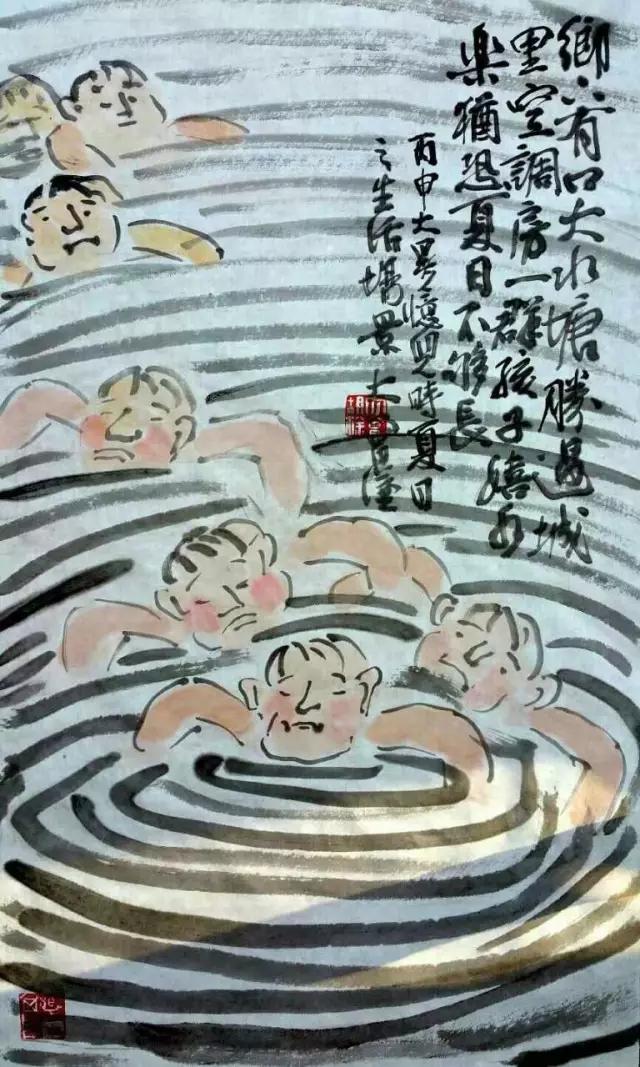 鄉下有口大水塘勝過城
里空調房一群孩子嬉水
楽猶恐夏日不够長
丙申大暑憶兒時夏日
之生活場景